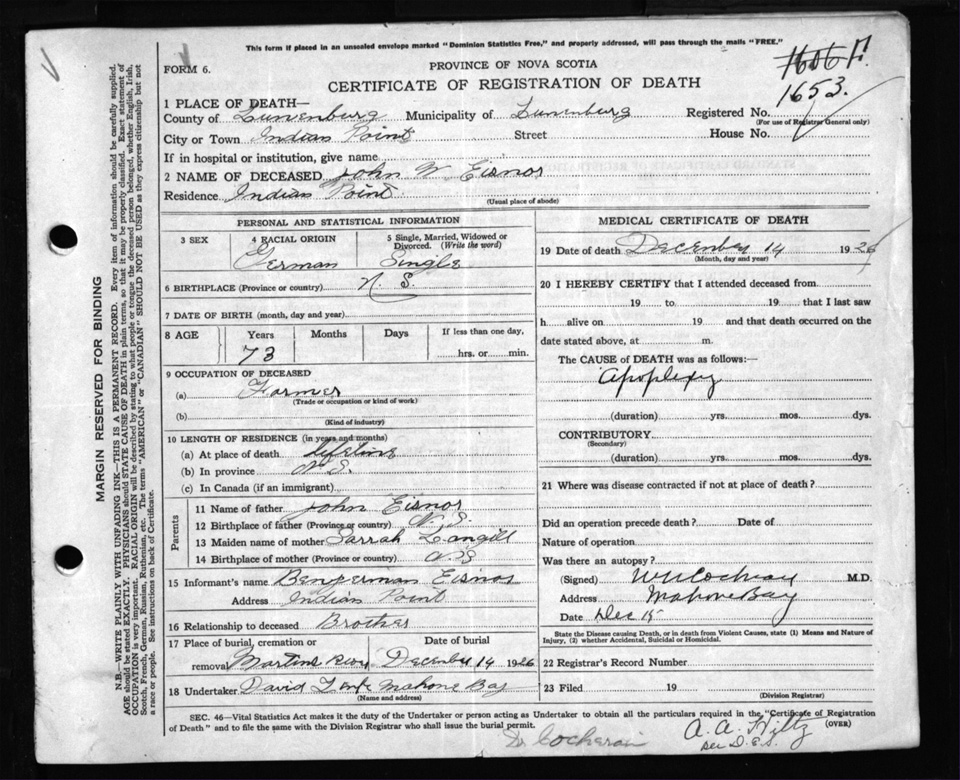 This form if placed in an unsealed envelope marked "Dominion Statistics Free," and properly addressed, will pass through the mails "FREE."
FORM 6.
PROVINCE OF NOVA SCOTIA
CERTIFICATE OF REGISTRATION OF DEATH
1606 F.
1653
1 PLACE OF DEATH—
County of Lunenburg Municipality of Lunenburg Registered No.
(For use of Registrar General only)
City or Town Indian Point Street House No.
If in hospital or institution, give name
2 NAME OF DECEASED John W Eisnor
Residence Indian Point
(Usual place of abode)
PERSONAL AND STATISTICAL INFORMATION
3 SEX 4 RACIAL ORIGIN 5 Single, Married, Widowed or Divorced. (Write the word)
German Single
6 BIRTHPLACE (Province or country) N. S.
7 DATE OF BIRTH (month, day and year)
8 AGE Years Months Days If less than one day,
73 hrs. or min.
9 OCCUPATION OF DECEASED
(a) Farmer
(Trade or occupation or kind of work)
(b)
(Kind of industry)
10 LENGTH OF RESIDENCE (in years and months)
(a) At place of death lifetime
(b) In province N. S.
(c) In Canada (if an immigrant)
Parents
11 Name of father John Eisnor
12 Birthplace of father (Province or country) N. S.
13 Maiden name of mother Sarrah Langill
14 Birthplace of mother (Province or country) N S
15 Informant's name Benjerman Eisnor
Address Indian Point
16 Relationship to deceased Brother
17 Place of burial, cremation or Date of burial
removal Martins December 14 1926
18 Undertaker David Mahone Bay
(Name and address)
MEDICAL CERTIFICATE OF DEATH
19 Date of death December 14 1926
(Month, day and year)
20 I HEREBY CERTIFY that I attended deceased from
19 to 19 that I last saw
h alive on 19 and that death occurred on the
date stated above, at m.
The CAUSE of DEATH was as follows:—
Apoplexy
(duration) yrs. mos. dys.
CONTRIBUTORY
(Secondary)
(duration) yrs. mos. dys.
21 Where was disease contracted if not at place of death?
Did an operation precede death? Date of
Nature of operation
Was there an autopsy?
(Signed) W N Cochran M.D.
Address Mahone Bay
Date Dec 15
State the Disease causing Death, or in death from Violent Causes, state (1) Means and Nature of Injury, (2) whether Accidental, Suicidal or Homicidal.
22 Registrar's Record Number
23 Filed 19
(Division Registrar)
SEC. 46—Vital Statistics Act makes it the duty of the Undertaker or person acting as Undertaker to obtain all the particulars required in the "Certificate of Registration
of Death" and to file the same with the Division Registrar who shall issue the burial permit.
(OVER)
Dr Cocheran
A. A. Wiltz
MARGIN RESERVED FOR BINDING
N.B.—WRITE PLAINLY WITH UNFADING INK—THIS IS A PERMANENT RECORD. Every item of information should be carefully supplied.
AGE should be stated EXACTLY. PHYSICIANS should STATE CAUSE OF DEATH in plain terms, so that it may be properly classified. Exact statement of
OCCUPATION is very important. RACIAL ORIGIN will be described by stating to what people or tongue the deceased person belonged, whether English, Irish,
Scotch, French, German, Russian, Ruthenian, etc. The terms "AMERICAN" or "CANADIAN" SHOULD NOT BE USED as they express citizenship but not
a race or people. See instructions on back of Certificate.